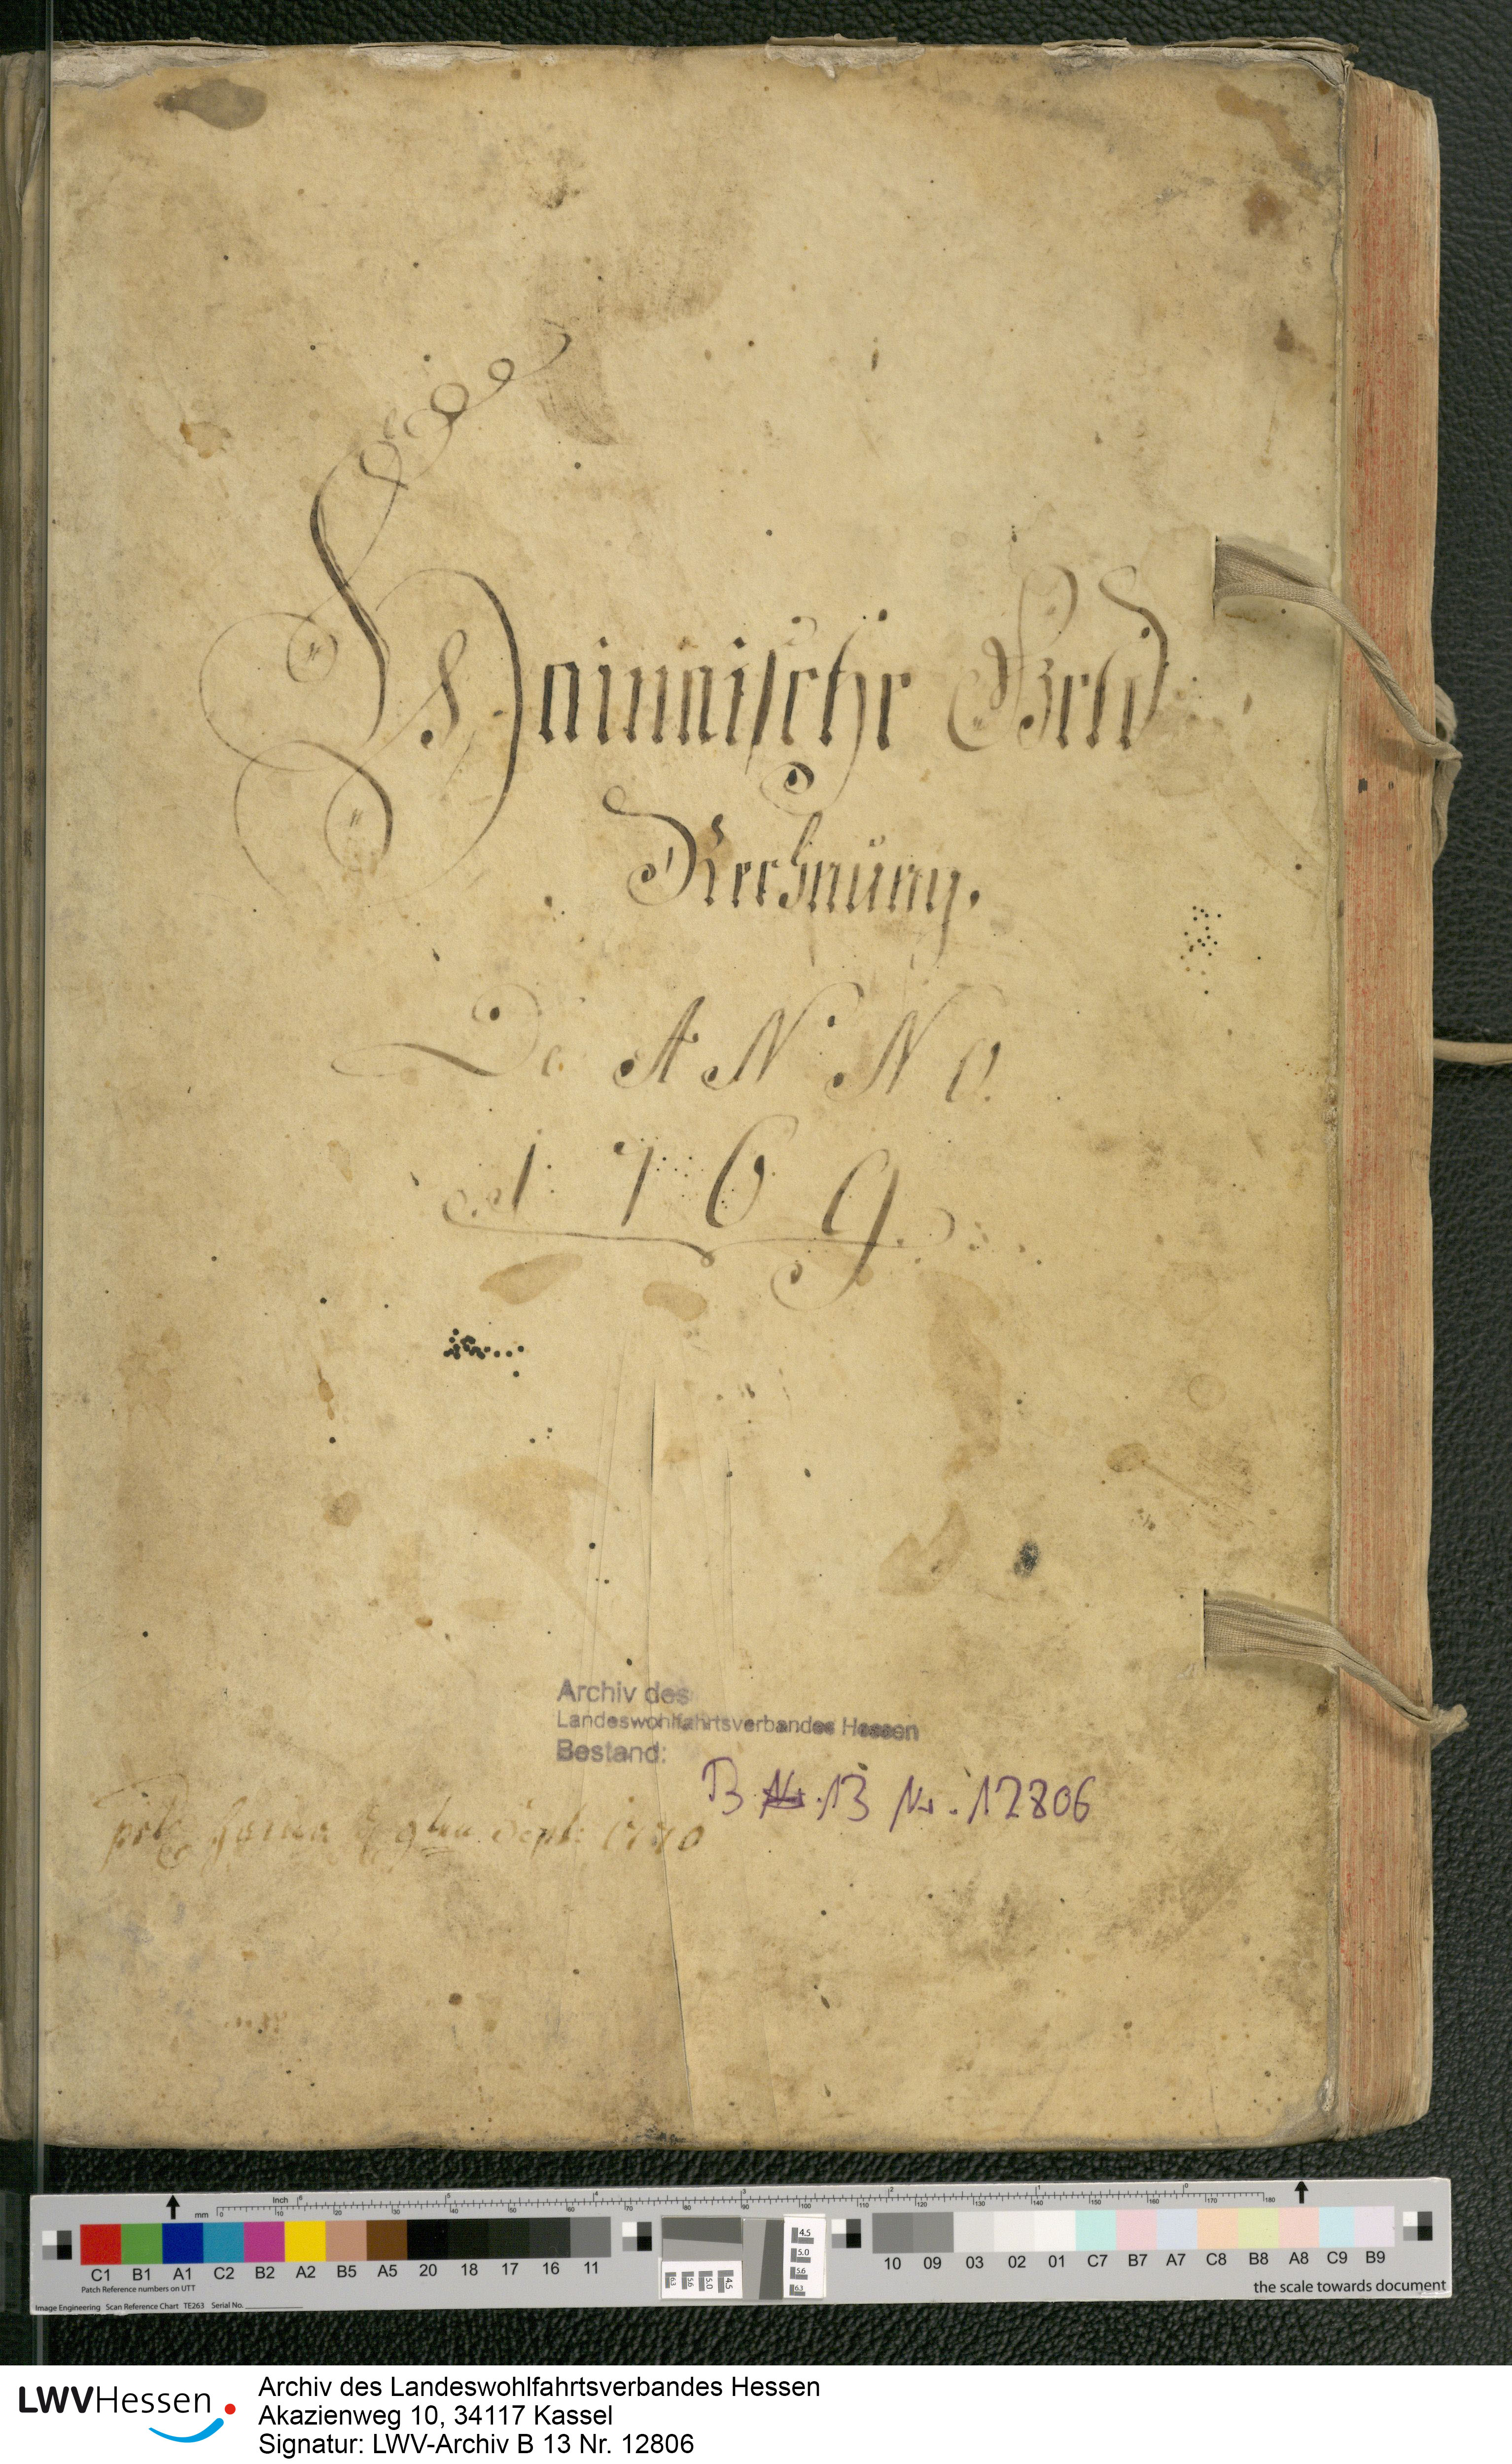 Hainaische Geld
Rechnung.
De ANNO.
1769.
Archiv des
Landeswohlfahrtsverbandes Hessen
Bestand:
B 13 Nr. 12806
Haina 9ten Sept: 1770
Inch
mm
C1 B1 A1 C2 B2 A2 B5 A5 20 18 17 16 11
10 09 03 02 01 C7 B7 A7 C8 B8 A8 C9 B9
Patch Reference numbers on UTT
the scale towards document
Image Engineering Scan Reference Chart TE263 Serial No.
LWVHessen
Archiv des Landeswohlfahrtsverbandes Hessen
Akazienweg 10, 34117 Kassel
Signatur: LWV-Archiv B 13 Nr. 12806